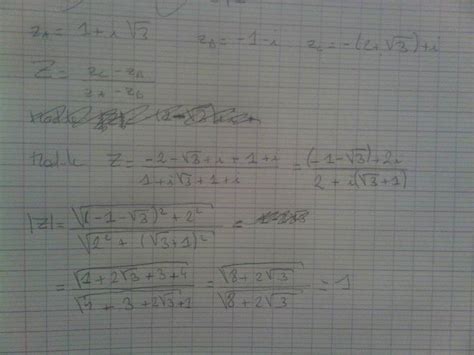 z_A = 1 + i√3 z_B = -1 - i z_C = -(2 + √3) + i
Z = (z_C - z_B) / (z_A - z_B)
Z = (-2 - √3 + i + 1 + i) / (1 + i√3 + 1 + i) = ((-1 - √3) + 2i) / (2 + i(√3 + 1))
|Z| = √((-1 - √3)² + 2²) / √(2² + (√3 + 1)²) =
= √(1 + 2√3 + 3 + 4) / = √(8 + 2√3) / √(8 + 2√3) = 1